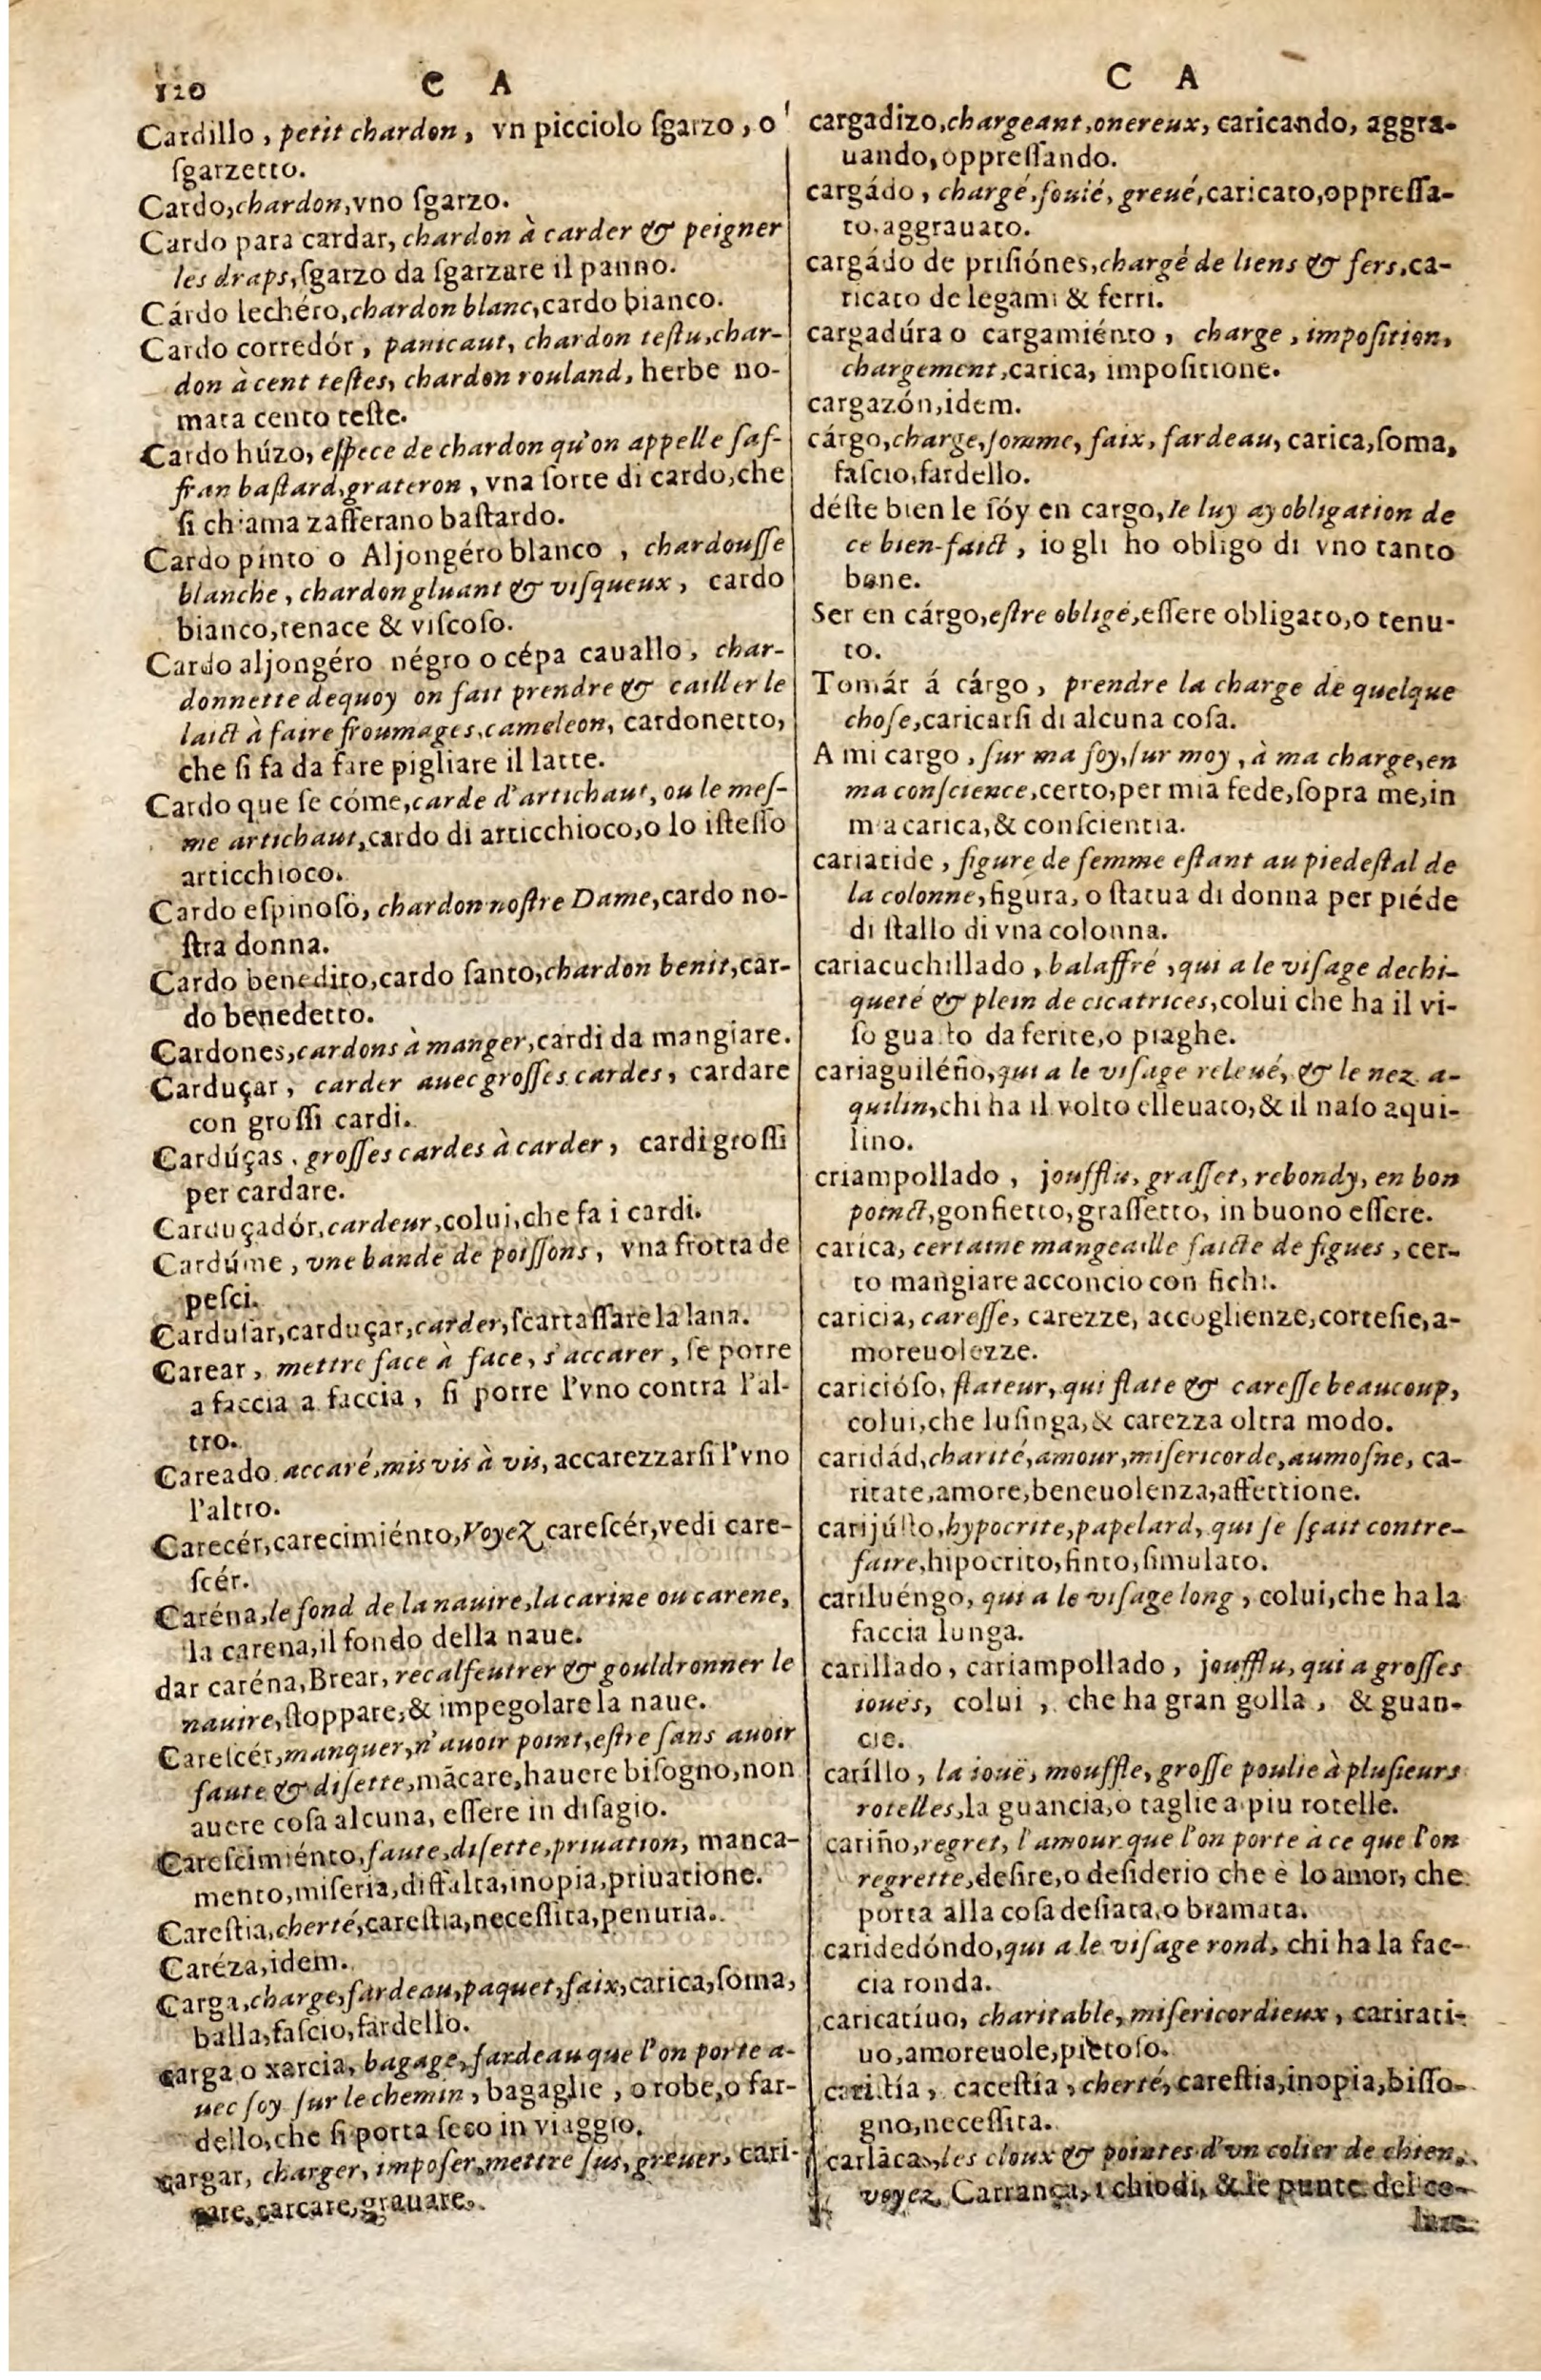 120 C A
Cardillo, petit chardon, vn picciolo ſgarzo, o
ſgarzetto.
Cardo, chardon, vno ſgarzo.
Cardo para cardar, chardon à carder & peigner
les draps, ſgarzo da ſgarzare il panno.
Cárdo lechéro, chardon blanc, cardo bianco.
Cardo corredór, panicaut, chardon teſtu, char-
don à cent teſtes, chardon rouland, herbe no-
mata cento teſte.
Cardo húzo, eſpece de chardon qu'on appelle ſaf-
fran baſtard, grateron, vna ſorte di cardo, che
ſi chiama zafferano baſtardo.
Cardo pinto o Aljongéro blanco, chardouſſe
blanche, chardon gluant & viſqueux, cardo
bianco, tenace & viſcoſo.
Cardo aljongéro négro o cépa cauallo, char-
donnette dequoy on fait prendre & cailler le
laict à faire froumages, cameleon, cardonetto,
che ſi fa da fare pigliare il latte.
Cardo que ſe cóme, carde d'artichaut, ou le meſ-
me artichaut, cardo di articchioco, o lo iſteſſo
articchioco.
Cardo eſpinoſo, chardon noſtre Dame, cardo no-
ſtra donna.
Cardo benedito, cardo ſanto, chardon benit, car-
do benedetto.
Cardones, cardons à manger, cardi da mangiare.
Carduçar, carder auec groſſes cardes, cardare
con groſſi cardi.
Cardúças, groſſes cardes à carder, cardi groſſi
per cardare.
Carduçadór, cardeur, colui, che fa i cardi.
Cardúme, vne bande de poiſſons, vna frotta de
peſci.
Carduſar, carduçar, carder, ſcartaſſare la lana.
Carear, mettre face à face, s'accarer, ſe porre
a faccia a faccia, ſi porre l'vno contra l'al-
tro.
Careado, accaré, mis vis à vis, accarezzarſi l'vno
l'altro.
Carecér, carecimiénto, Voyez careſcér, vedi care-
ſcér.
Caréna, le fond de la nauire, la carine ou carene,
la carena, il fondo della naue.
dar caréna, Brear, recalfeutrer & gouldronner le
nauire, ſtoppare, & impegolare la naue.
Careſcér, manquer, n'auoir point, eſtre ſans auoir
faute & diſette, mãcare, hauere biſogno, non
auere coſa alcuna, eſſere in diſagio.
Careſcimiénto, faute, diſette, priuation, manca-
mento, miſeria, diffalta, inopia, priuatione.
Careſtia, cherté, careſtia, neceſſita, penuria.
Caréza, idem.
Carga, charge, fardeau, paquet, faix, carica, ſoma,
balla, faſcio, fardello.
carga o xarcia, bagage, fardeau que l'on porte a-
uec ſoy ſur le chemin, bagaglie, o robe, o far-
dello, che ſi porta ſeco in viaggio.
cargar, charger, impoſer, mettre ſus, greuer, cari-
care, carcare, grauare.
C A
cargadizo, chargeant, onereux, caricando, aggra-
uando, oppreſſando.
cargádo, chargé, foulé, greué, caricato, oppreſſa-
to, aggrauato.
cargádo de priſiónes, chargé de liens & fers, ca-
ricato de legami & ferri.
cargadúra o cargamiénto, charge, impoſition,
chargement, carica, impoſitione.
cargazón, idem.
cárgo, charge, ſomme, faix, fardeau, carica, ſoma,
faſcio, fardello.
déſte bien le ſóy en cargo, Ie luy ay obligation de
ce bien-faict, io gli ho obligo di vno tanto
bene.
Ser en cárgo, eſtre obligé, eſſere obligato, o tenu-
to.
Tomár á cárgo, prendre la charge de quelque
choſe, caricarſi di alcuna coſa.
A mi cargo, ſur ma foy, ſur moy, à ma charge, en
ma conſcience, certo, per mia fede, ſopra me, in
mia carica, & conſcientia.
cariatide, figure de femme eſtant au piedeſtal de
la colonne, figura, o ſtatua di donna per piéde
di ſtallo di vna colonna.
cariacuchillado, balaffré, qui a le viſage dechi-
queté & plein de cicatrices, colui che ha il vi-
ſo guaſto da ferite, o piaghe.
cariaguiléño, qui a le viſage releué, & le nez a-
quilin, chi ha il volto elleuato, & il naſo aqui-
lino.
criampollado, joufflu, graſſet, rebondy, en bon
poinct, gonfietto, graſſetto, in buono eſſere.
carica, certaine mangeaille faicte de figues, cer-
to mangiare acconcio con fichi.
caricia, careſſe, carezze, accoglienze, corteſie, a-
moreuolezze.
caricióſo, flateur, qui flate & careſſe beaucoup,
colui, che luſinga, & carezza oltra modo.
caridád, charité, amour, miſericorde, aumoſne, ca-
ritate, amore, beneuolenza, affettione.
carijúſto, hypocrite, papelard, qui ſe ſçait contre-
faire, hipocrito, finto, ſimulato.
cariluéngo, qui a le viſage long, colui, che ha la
faccia lunga.
carillado, cariampollado, joufflu, qui a groſſes
ioues, colui, che ha gran golla, & guan-
cie.
caríllo, la iouë, mouffle, groſſe poulie à pluſieurs
rotelles, la guancia, o taglie a piu rotelle.
cariño, regret, l'amour que l'on porte à ce que l'on
regrette, deſire, o deſiderio che è lo amor, che
porta alla coſa deſiata, o bramata.
caridedóndo, qui a le viſage rond, chi ha la fac-
cia ronda.
caricatíuo, charitable, miſericordieux, caritati-
uo, amoreuole, pietoſo.
cariſtía, caceſtía, cherté, careſtia, inopia, biſſo-
gno, neceſſita.
carlācas, les cloux & pointes d'vn colier de chien,
voyez Carrança, i chiodi, & le punte del co-
lare.